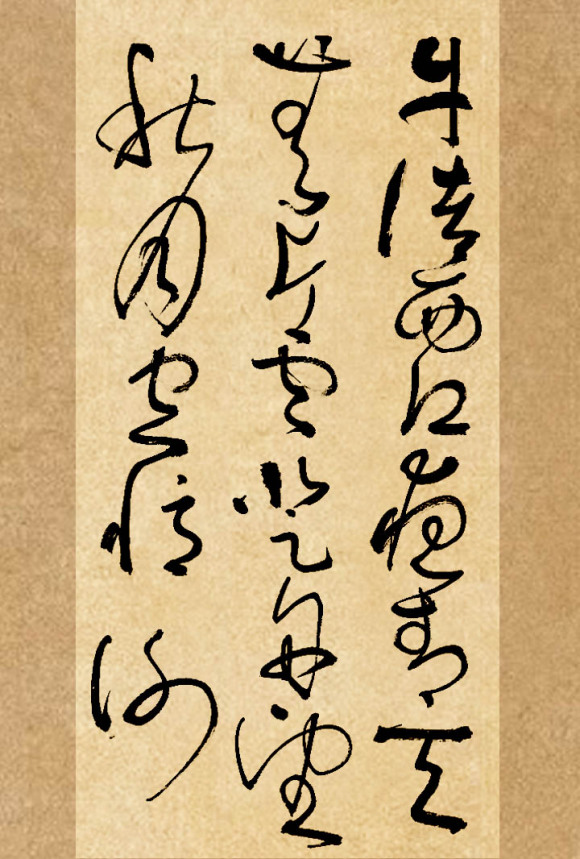 牛渚西江夜青天
無片雲登舟望
秋月空憶謝